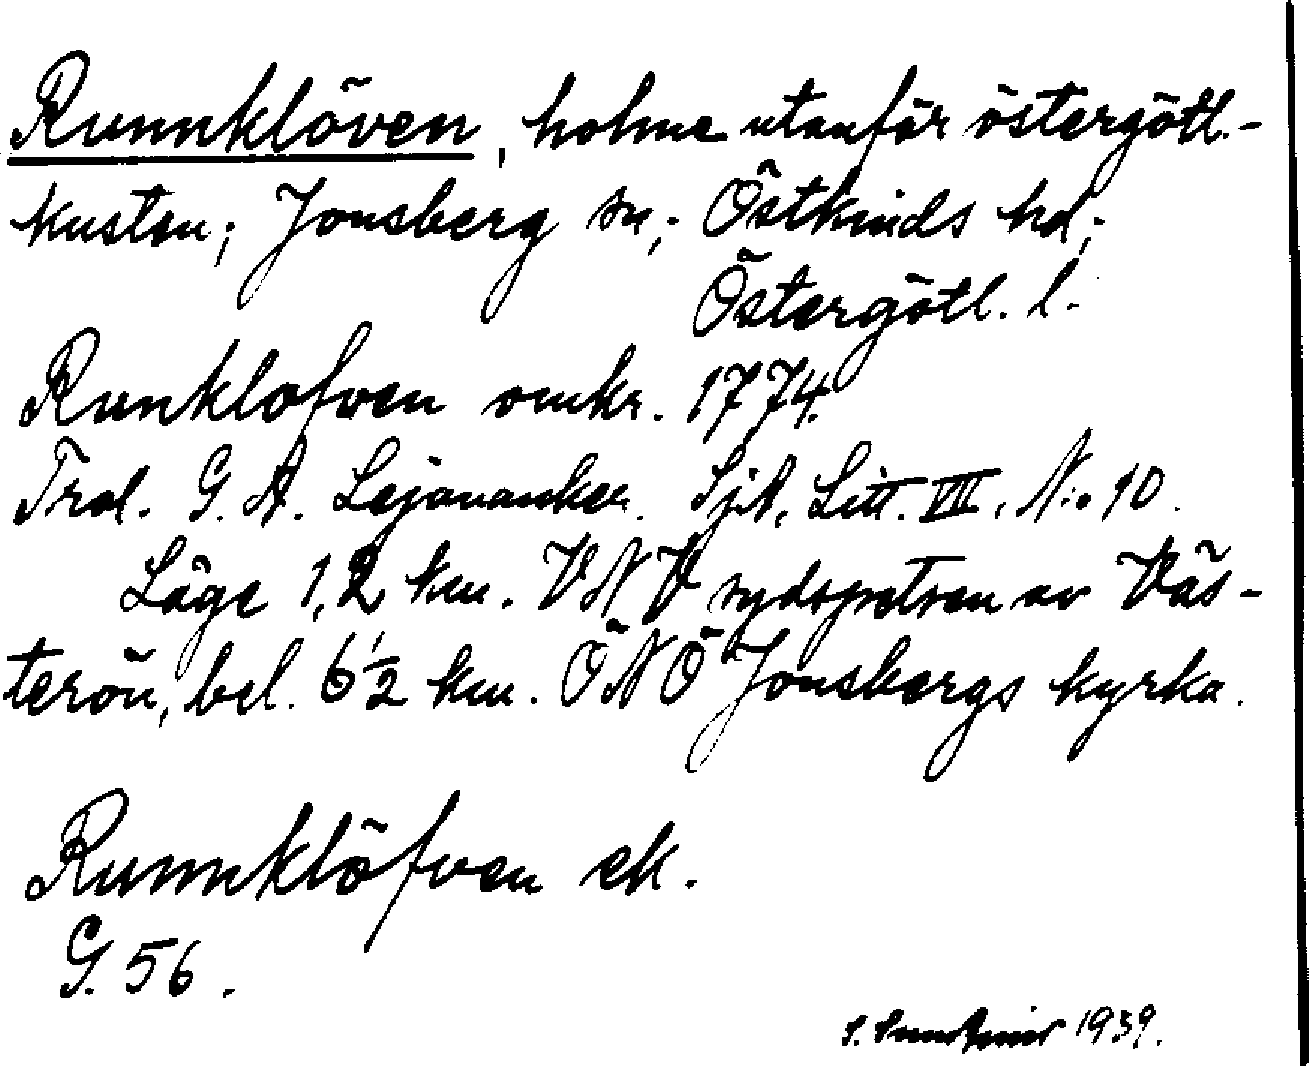 Runnklöven, holme utanför östergötl.-
kusten; Jonsberg sn; Östkinds hd;
Östergötl. l.
Runklofven omkr. 1774.
Trol. G. A. Lejonancker. Sjk, Litt. VIII, N:o 10.
Läge 1,2 km. VNV sydspetsen av Väs-
terön, bel. 6 1/2 km. ÖNÖ Jonsbergs kyrka.
Runnklöfven ek.
G. 56.
S. 1939.